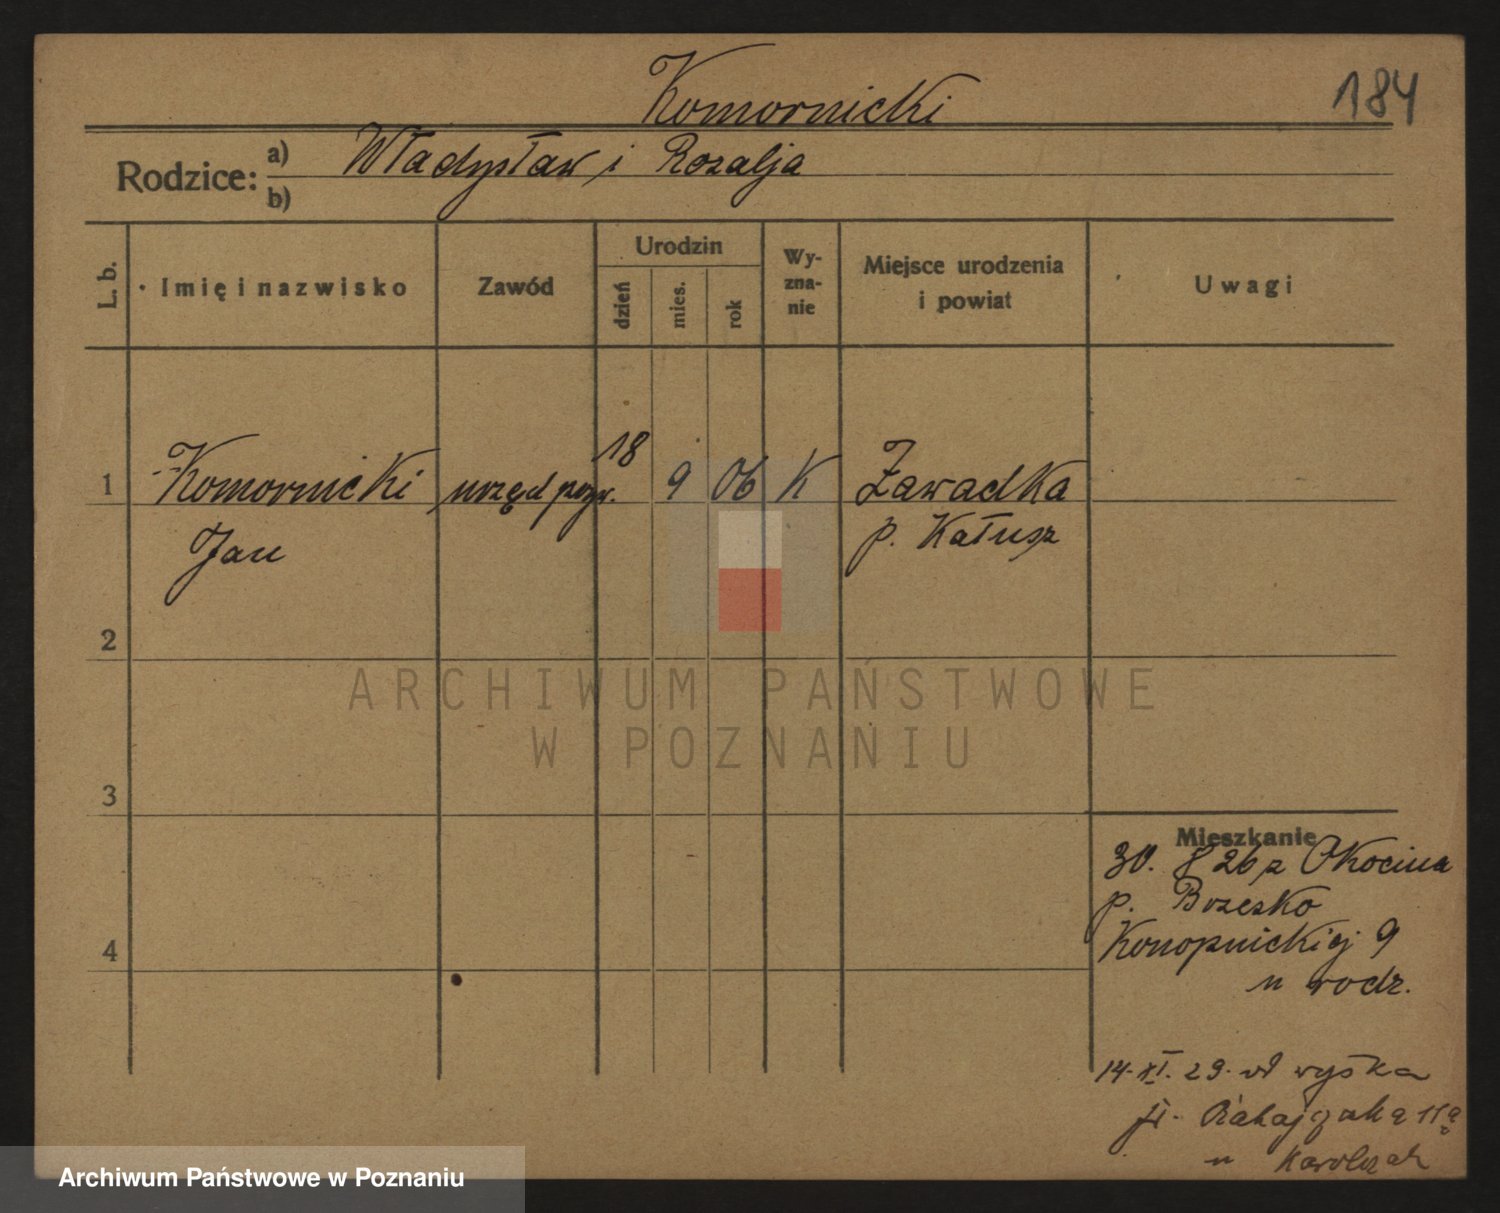 Komornicki
184
Rodzice: a) Władysław i Rozalja
b)
L. b.
Imię i nazwisko
Zawód
Urodzin
dzień
mies.
rok
Wy-
zna-
nie
Miejsce urodzenia
i powiat
Uwagi
1 Komornicki urzęd pryw. 18 9 06 K Zawadka
Jan p. Kałusz
2
3
4
Mieszkanie
30. 8 26 z Okocina
p. Brzesko
Konopnickiej 9
u rodz.
14. XI. 29. wyska
11a
u Karolczak
ARCHIWUM PAŃSTWOWE
W POZNANIU
Archiwum Państwowe w Poznaniu